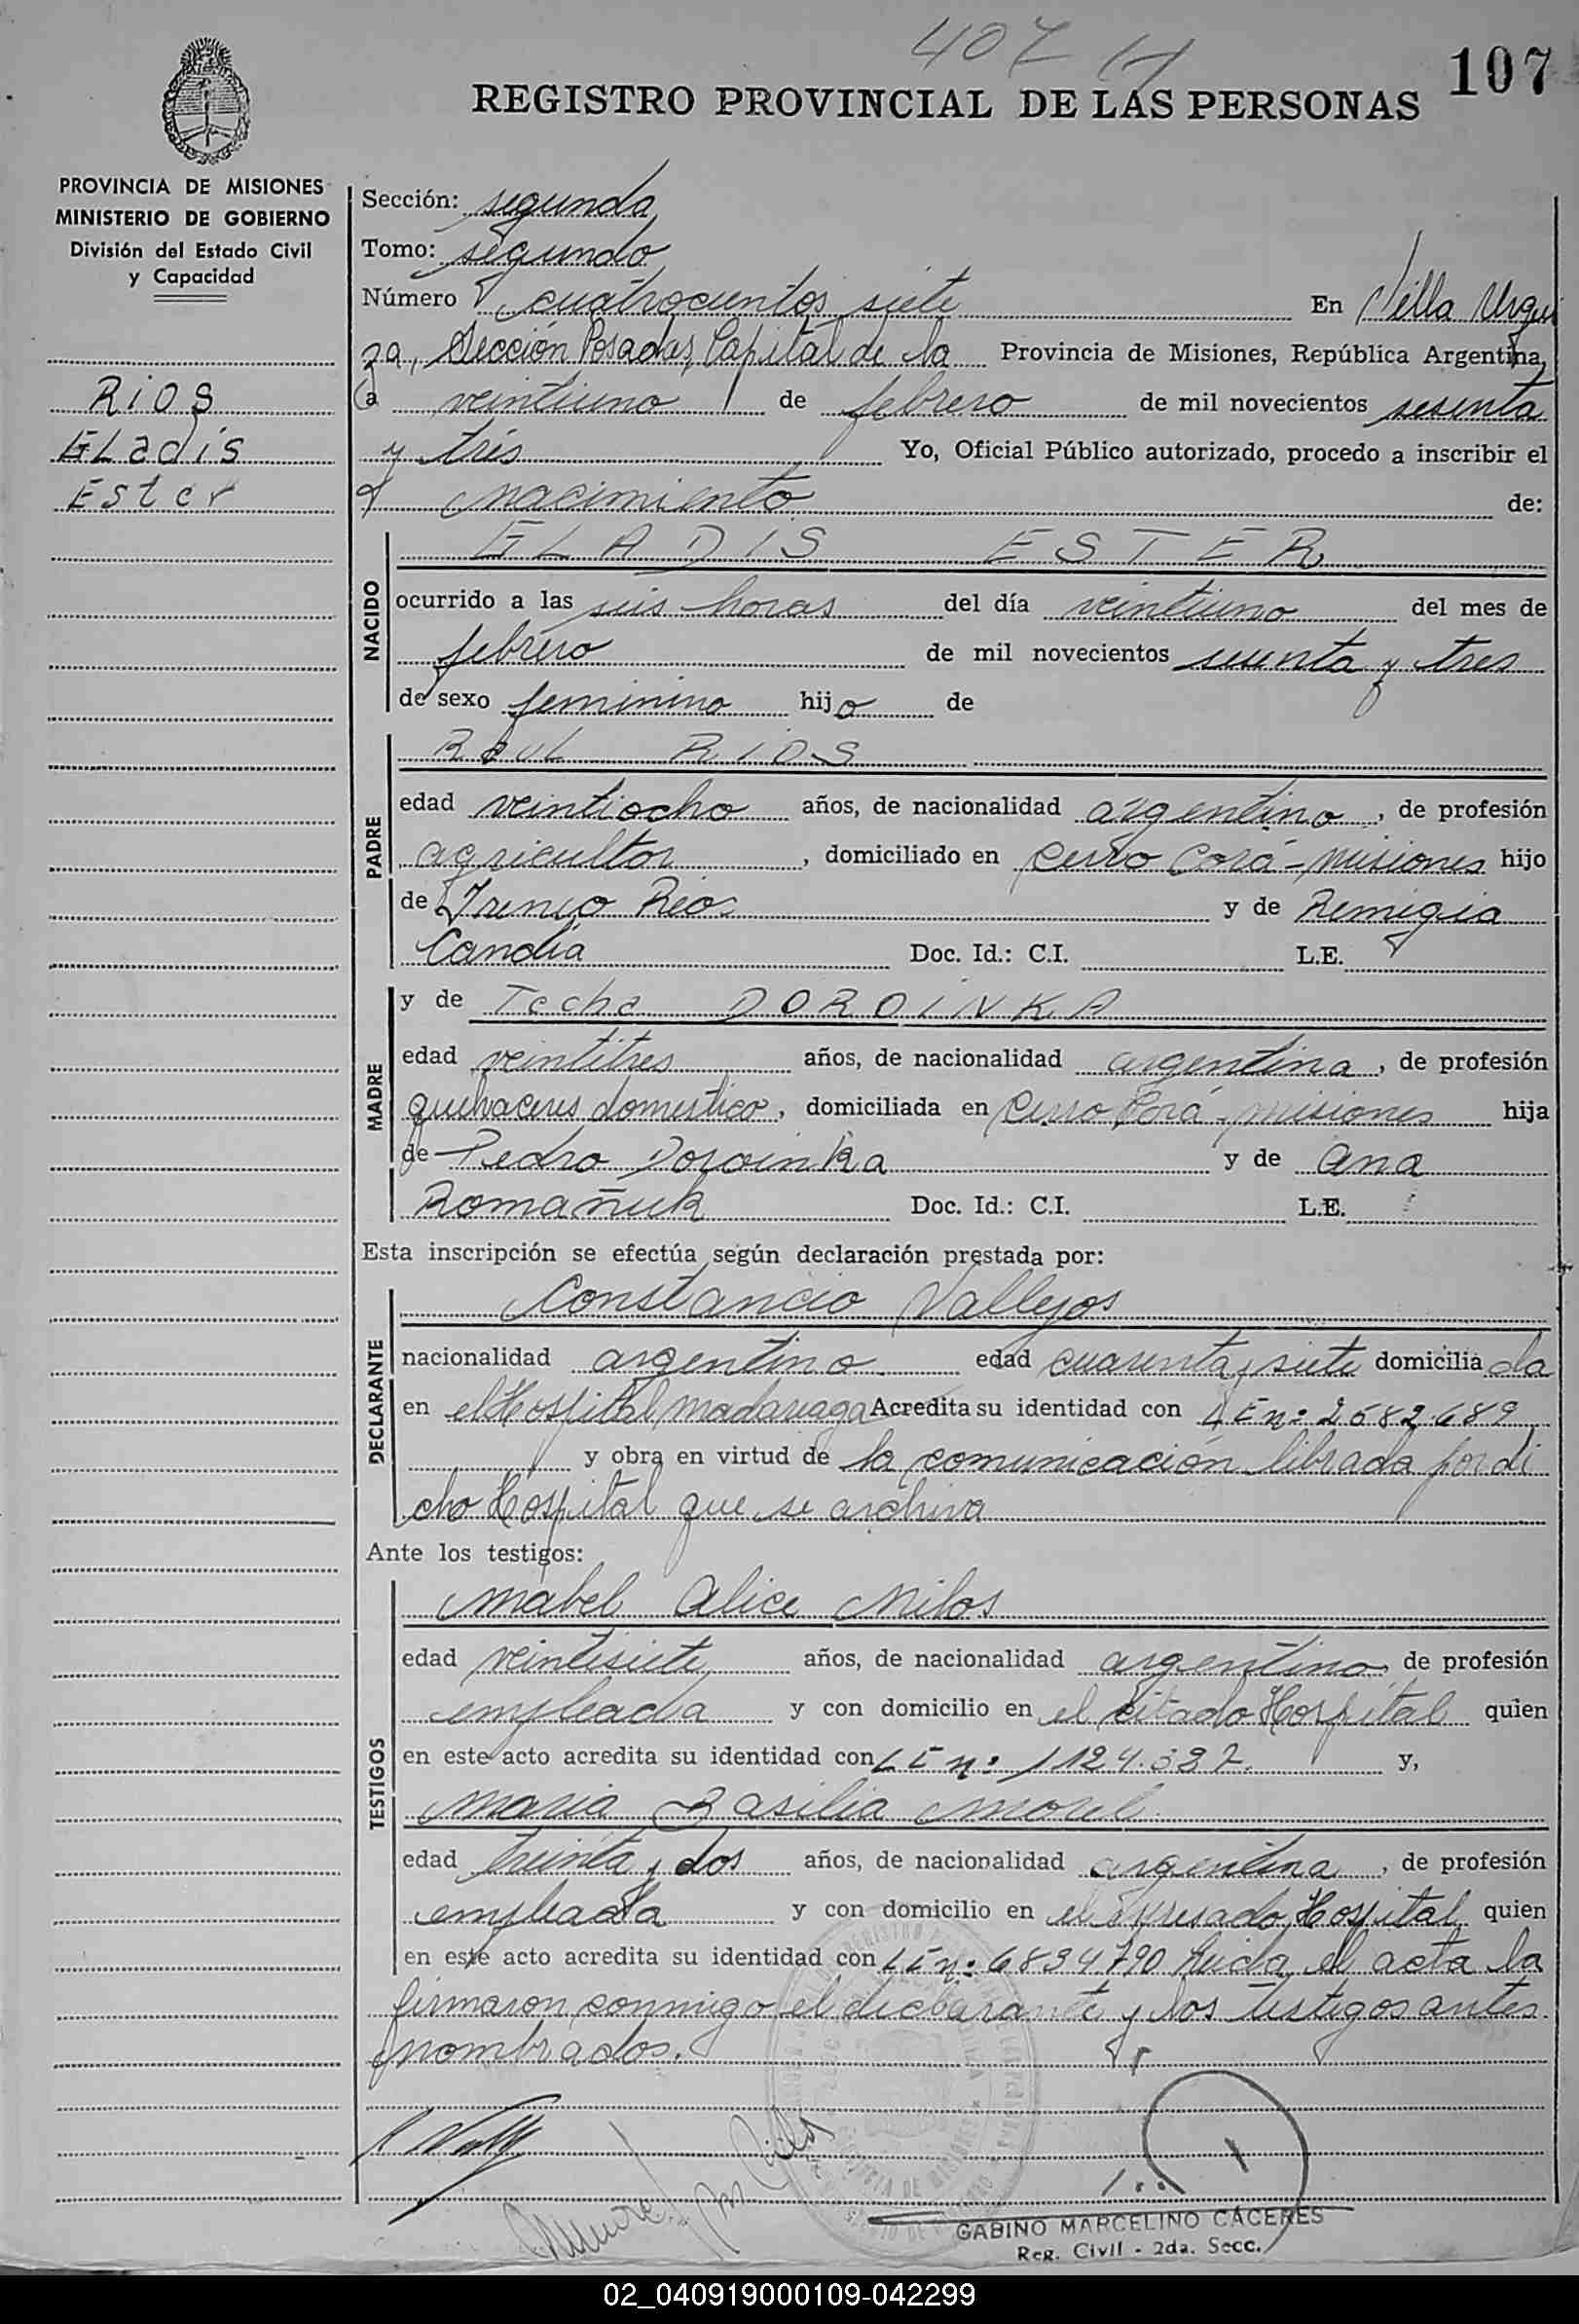 407
107
REGISTRO PROVINCIAL DE LAS PERSONAS
PROVINCIA DE MISIONES
MINISTERIO DE GOBIERNO
División del Estado Civil
y Capacidad
Rios
GLadis
Ester
Sección: segunda
Tomo: segundo
Número cuatrocientos siete En Villa Urqui
za, Sección Posadas, Capital de la Provincia de Misiones, República Argentina,
a veintiuno de febrero de mil novecientos sesenta
y tres Yo, Oficial Público autorizado, procedo a inscribir el
nacimiento de:
NACIDO
GLADIS ESTER
ocurrido a las seis horas del día veintiuno del mes de
febrero de mil novecientos sesenta y tres
de sexo feminino hijo de
PADRE
Raul RIOS
edad veintiocho años, de nacionalidad argentino, de profesión
agricultor, domiciliado en Cerro Corá - Misiones hijo
de Irenio Rios y de Remigia
Candia Doc. Id.: C.I. L.E.
MADRE
y de Techa DOROINKA
edad veintitres años, de nacionalidad argentina, de profesión
quehaceres domestico, domiciliada en Cerro Corá - misiones hija
de Pedro Doroinka y de Ana
Romañuk Doc. Id.: C.I. L.E.
Esta inscripción se efectúa según declaración prestada por:
DECLARANTE
Constancio Vallejos
nacionalidad argentino edad cuarenta y siete domicilia da
en el Hospital Madariaga Acredita su identidad con LE nº 2582.689
y obra en virtud de la comunicación librada por di
cho Hospital que se archiva
Ante los testigos:
TESTIGOS
Mabel Alice Milos
edad veintisiete años, de nacionalidad argentino, de profesión
empleada y con domicilio en el citado Hospital quien
en este acto acredita su identidad con LE nº y,
Maria Basilia Morel
edad treinta y dos años, de nacionalidad argentina, de profesión
empleada y con domicilio en el expresado Hospital quien
en este acto acredita su identidad con LE nº 6834790 Leida el acta la
firmaron conmigo el declarante y los testigos antes
nombrados.
GABINO MARCELINO CÁCERES
Reg. Civil - 2da. Secc.
02_040919000109-042299